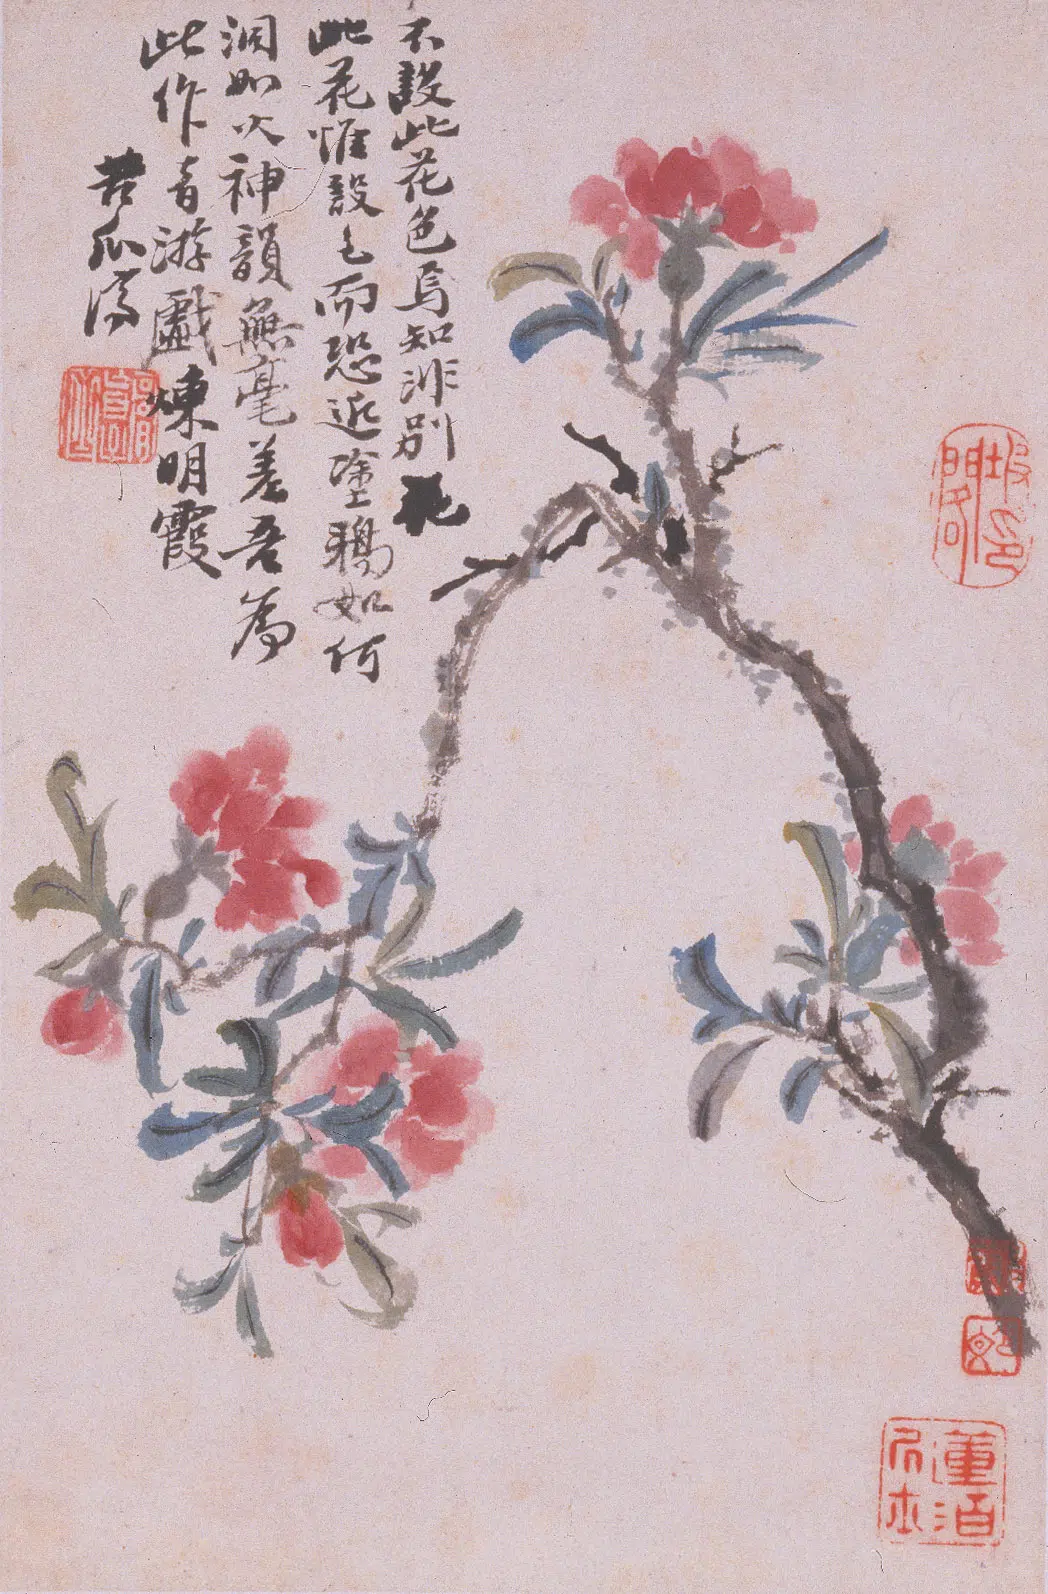 不設此花色焉知非別花
此花惟設色而恐近塗鴉如何
洞如火神韻無毫差吾為
此作音游戲煉明霞
苦瓜濟